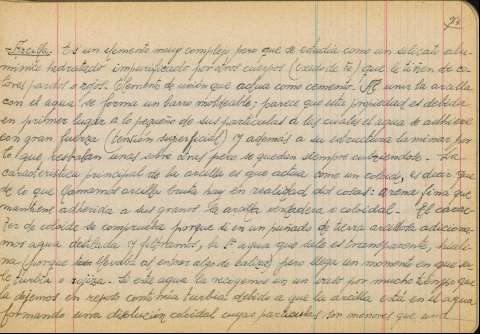 98
-Arcilla.- Es un elemento muy complejo pero que se estudia como un silicato alu-
mínico hidratado impurificado por otros cuerpos (óxidos de Fe) que le tiñen de co-
lores pardos o rojos. Elemento de unión que actua como cemento. Al unir la arcilla
con el agua se forma un barro moldeable; parece que esta propiedad es debida
en primer lugar a lo pequeño de sus particulas a las cuales el agua se adhiere
con gran fuerza (tensión superficial) y además a su estructura laminar por
lo que resbalan unas sobre otras pero se quedan siempre
característica principal de la arcilla es que actua como un coloide, es decir que
de lo que llamamos arcilla bruta hay en realidad dos cosas: arena fina que
mantiene adherida a sus granos la arcilla verdadera o coloidal.- El carac-
ter de coloide se comprueba porque si en un puñado de tierra arcillosa adiciona-
mos agua destilada y filtramos, la 1ª agua que sale es transparente, hiali-
na (porque al entrar algo de ) pero llega un momento en que sa-
le turbia o rojiza. Si este agua la recogemos en un vaso por mucho tiempo que
la dejemos en reposo continúa turbia debido a que la arcilla está en el agua
formando una disolución coloidal cuyas particulas son menores que una